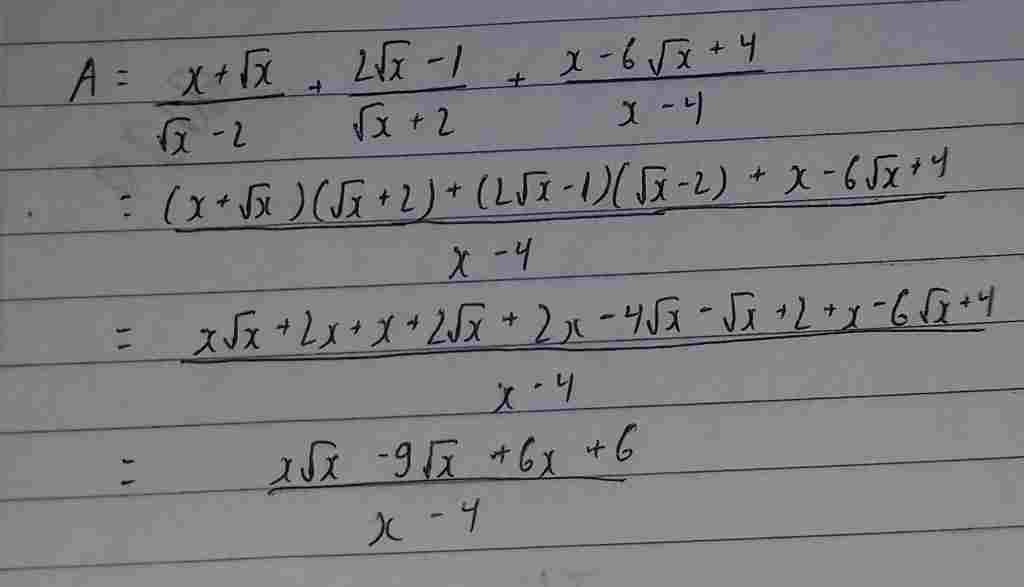 A = (x + √x)/(√x - 2) + (2√x - 1)/(√x + 2) + (x - 6√x + 4)/(x - 4)
= ((x + √x)(√x + 2) + (2√x - 1)(√x - 2) + x - 6√x + 4)/(x - 4)
= (x√x + 2x + x + 2√x + 2x - 4√x - √x + 2 + x - 6√x + 4)/(x - 4)
= (x√x - 9√x + 6x + 6)/(x - 4)